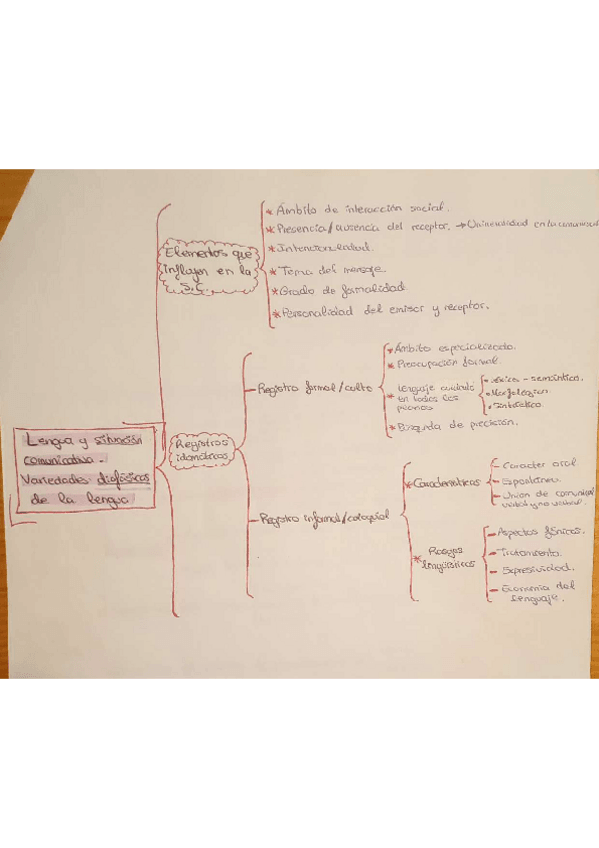 Lengua y situación
comunicativa.
Variedades diafásicas
de la lengua
Elementos que
influyen en la
S.C.
* Ámbito de interacción social.
* Presencia/ausencia del receptor. →
* Intencionalidad.
* Tema del mensaje.
* Grado de formalidad
* Personalidad del emisor y receptor.
Registros
idiomáticos
Registro formal/culto
* Ámbito especializado.
* Preocupación formal.
* Lenguaje cuidado
en todos los
planos
• Léxico-semántico.
• Morfológico
• Sintáctico.
* Búsqueda de precisión.
Registro informal/coloquial
* Características
- Carácter oral.
- Espontáneo.
- Unión de comunicac
verbal y no verbal.
* Rasgos
lingüísticos
- Aspectos fónicos.
- Tratamiento.
- Expresividad.
- Economía del
lenguaje.